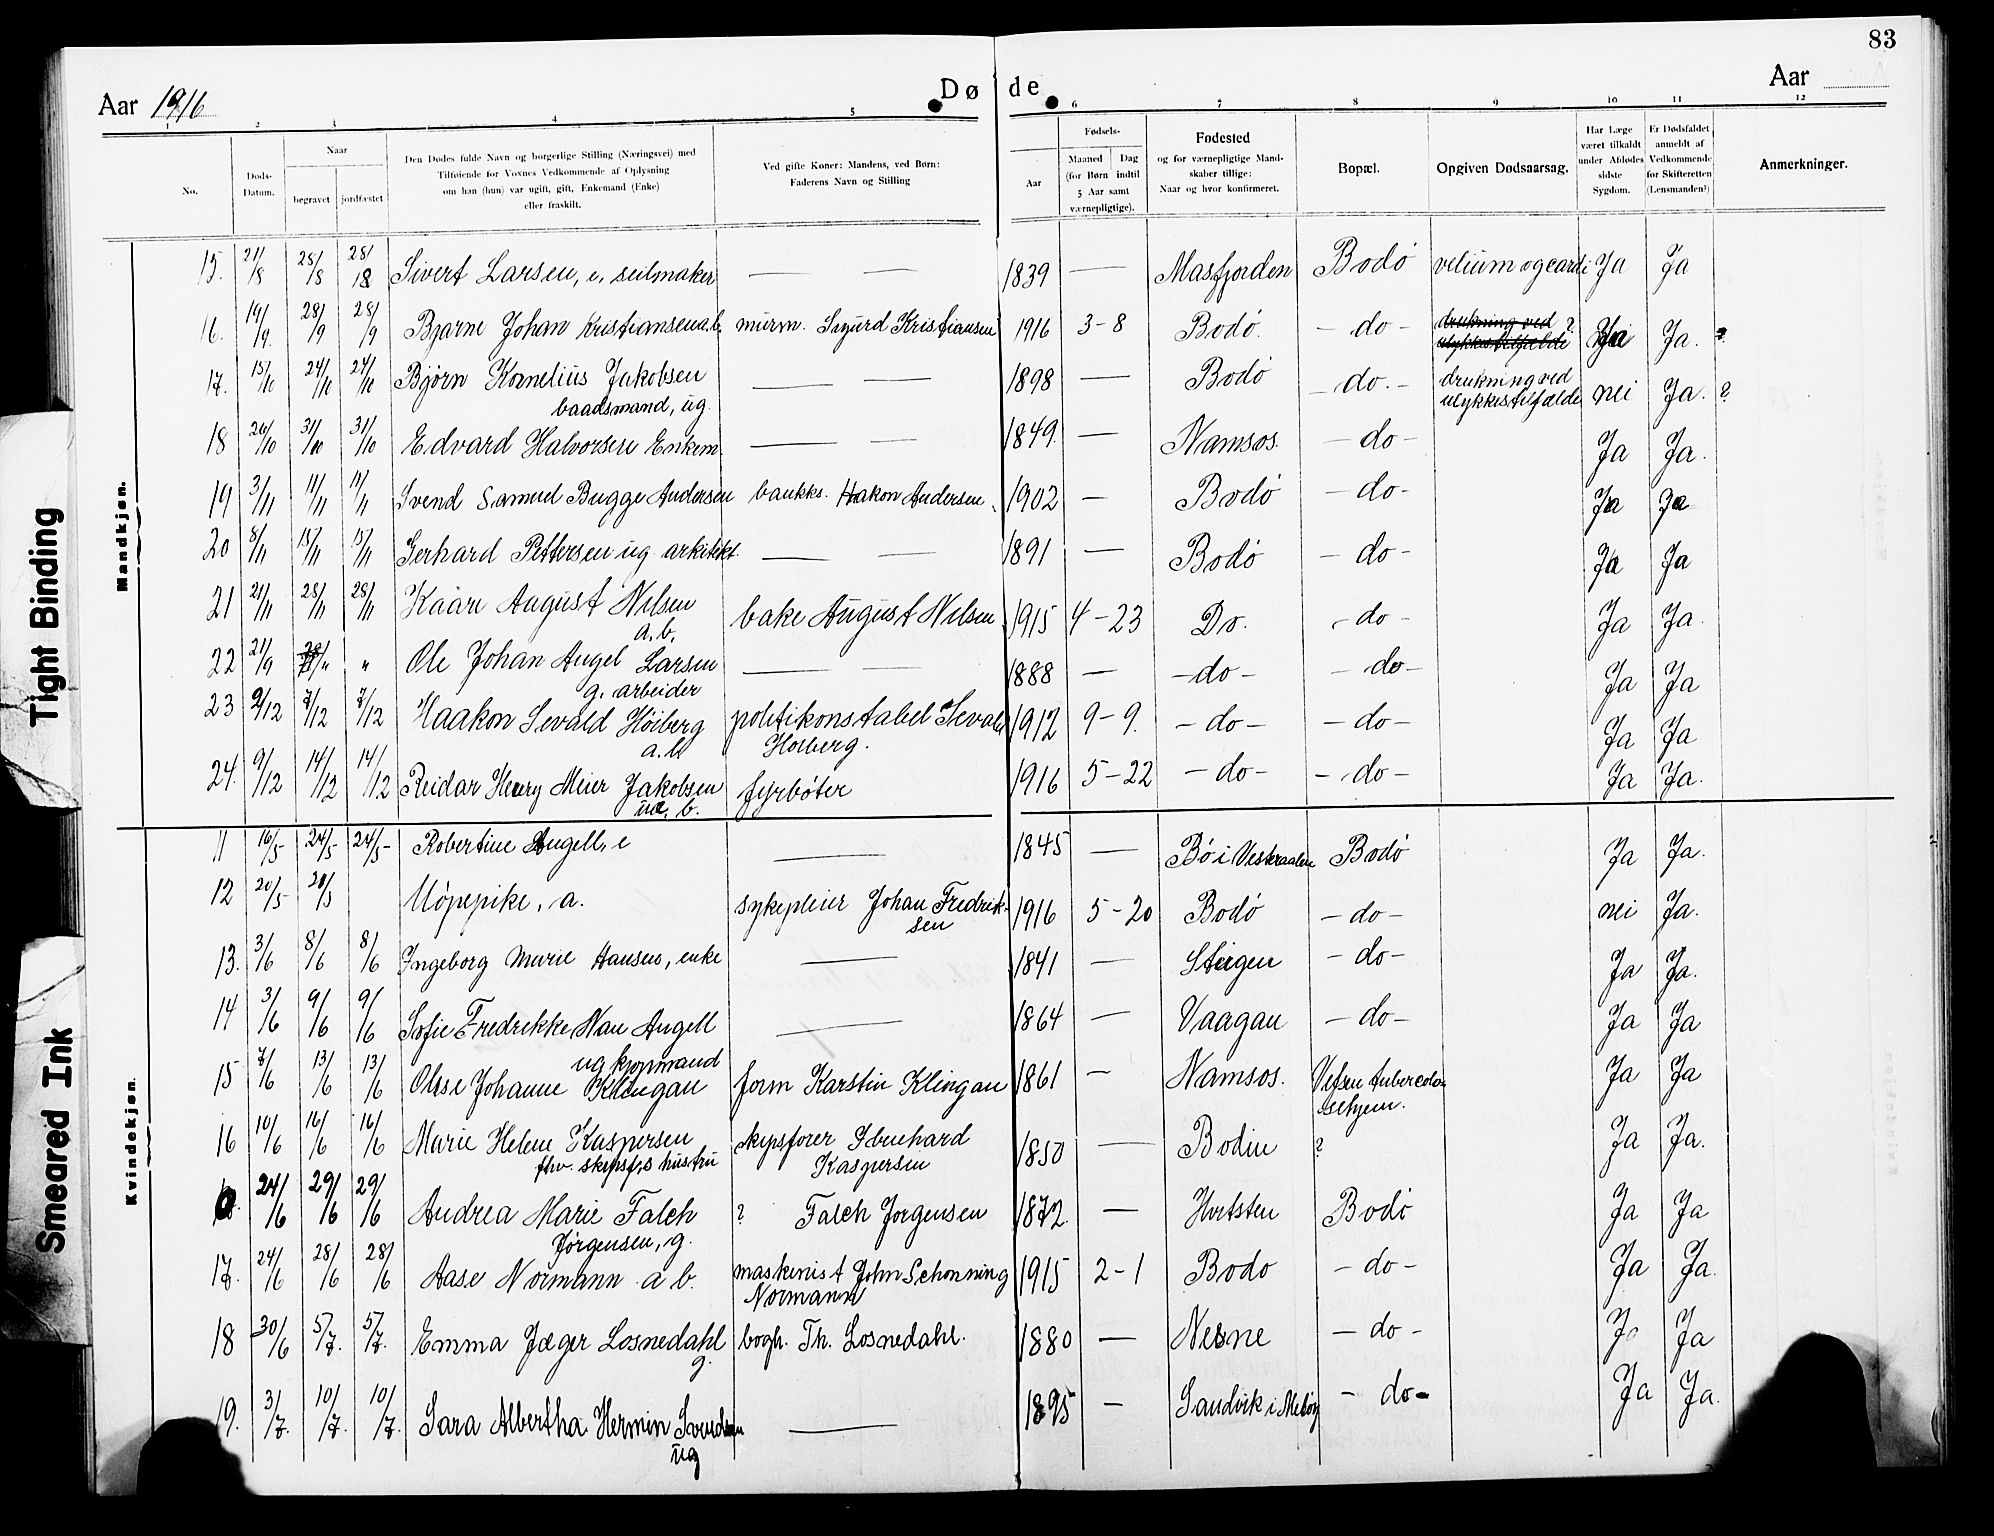 83
Aar 1916
Døde
Aar
1 2 3 4 5 6 7 8 9 10 11 12
No.
Døds-Datum.
Naar
begravet
jordfæstet
Den Dødes fulde Navn og borgerlige Stilling (Næringsvei) med
Tilføiende for Voxnes Vedkommende af Oplysning
om han (hun) var ugift, gift, Enkemand (Enke)
eller fraskilt.
Ved gifte Koner: Mandens, ved Børn:
Faderens Navn og Stilling
Fødsels-
Aar
Maaned Dag
(for Børn indtil
5 Aar samt
værnepligtige).
Fødested
og for værnepligtige Mand-
skaber tillige:
Naar og hvor konfirmeret.
Bopæl.
Opgiven Dødsaarsag.
Har Læge
været tilkaldt
under Afdødes
sidste
Sygdom.
Er Dødsfaldet
anmeldt af
Vedkommende
for Skifteretten
(Lensmanden?)
Anmerkninger.
Mandkjøn.
15. 21/8 28/8 28/8 Sivert Larsen, e, seilmaker — — 1839 — Masfjorden Bodø vitium o cardi Ja Ja
16. 19/9. 28/9 28/9 Bjarne Johan Kristiansen a.b. murm. Sigurd Kristiansen 1916 3-8 Bodø. - do - drukning ved ? ulykkestilfælde Ja. ?
17. 15/10 24/10 24/10 Bjørn Kornelius Jakobsen — — 1898 — Bodø - do. - drukning ved nei Ja. ?
baadsmand, ug. ulykkestilfælde
18 26/10 31/10 31/10 Edvard Halvorsen Enkem. — — 1849. — Namsos. - do - Ja Ja.
19 3/11 11/11 11/11 Svend Samuel Bugge Andersen bankks. Hakon Andersen 1902 — Bodø - do - Ja Ja
20 8/11 15/11 15/11 Gerhard Pettersen ug arkitekt — — 1891 — Bodø - do - Ja Ja
21 21/11 28/11 28/11 Kaare August Nilsen bake August Nilsen 1915 4-23 Do. - do - Ja Ja.
a.b.
22 21/9 28/" " Ole Johan Angel Larsen — — 1888 — - do - - do - Ja Ja
g. arbeider
23 2/12 7/12 7/12 Haakon Sevald Høiberg politikonstabel Sevald 1912 9-9. - do - - do - Ja Ja
a.b. Høiberg.
24. 9/12 14/12 14/12 Reidar Henry Meier Jakobsen fyrbøter 1916 5-22 - do - - do - Ja Ja.
u.æ. b.
Kvindekjøn.
11 16/5 24/5 24/5 Robertine Angell, e — 1845 — Bø i Vesteraalen Bodø Ja Ja.
12 20/5 20/5 Udøpt pike, a. sykepleier Johan Fredrik- 1916 5-20 Bodø - do - nei Ja.
sen
13. 3/6 8/6 8/6 Ingeborg Marie Hansen, enke — 1841 — Steigen - do - Ja Ja.
14 3/6 9/6 9/6 Sofie Fredrikke Wan Angell — 1864 — Vaagan - do - Ja Ja
ug kjøpmand
15 7/6 13/6 13/6 Olise Johanne Klingan form Karstin Klingan 1861 — Namsos. Vefsen tubercolo- Ja Ja
sehjem.
16 10/6 16/6 16/6 Marie Helene Kaspersen skipsfører Ibenhard 1850 — Bodin ? Ja Ja.
fhv. skipsf,s hustru Kaspersen
24/6 29/6 29/6 Andrea Marie Falch ? Falch Jørgensen 1872. — Hvitsten Bodø Ja Ja
Jørgensen, g.
17. 24/6 28/6 28/6 Aase Normann a b. maskinist John Schonning 1915 2-1 Bodø - do - Ja Ja.
Normann
18 30/6 5/7. 5/7. Emma Jæger Losnedahl bogh. Th. Losnedahl. 1880 — Nesne - do - Ja Ja
g.
19. 3/7. 10/7. 10/7. Sara Albertha Hermin Svendsen — 1895 — Sandvik i Meløy - do - Ja Ja.
ug
Tight Binding
Smeared Ink